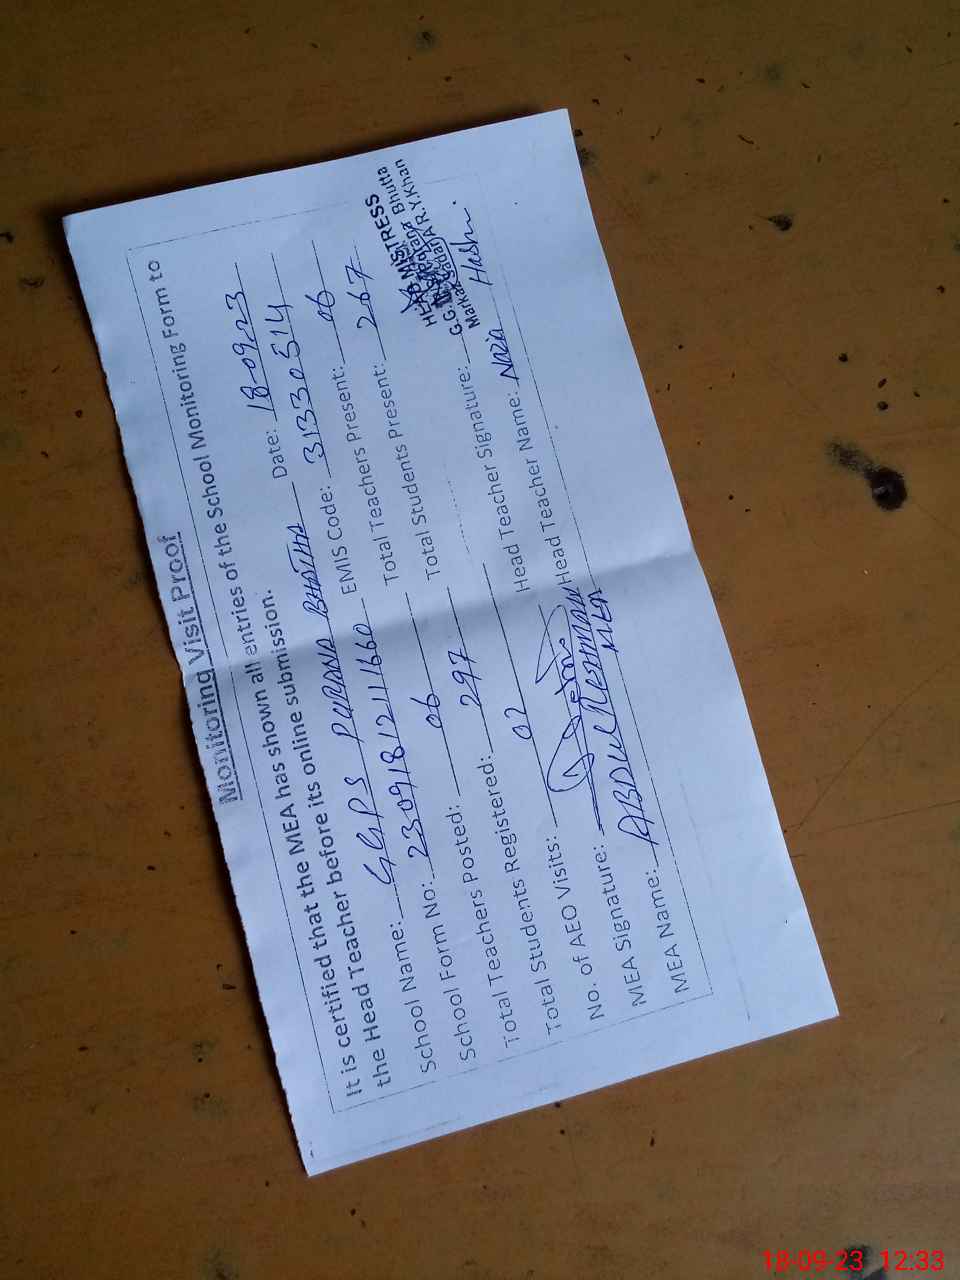 Monitoring Visit Proof
It is certified that the MEA has shown all entries of the School Monitoring Form to
the Head Teacher before its online submission.
School Name: GGPS PURANA Date: 18-09-23
School Form No: 2309181211660 EMIS Code: 31330514
Total Teachers Posted: 06 Total Teachers Present: 06
Total Students Registered: 297 Total Students Present: 267
HEAD MISTRESS
Bhutta
Markaz R.Y.Khan
No. of AEO Visits: 02 Head Teacher Signature:
MEA Signature: Head Teacher Name: Nazia Hash.
MEA Name: ABDUL REHMAN
MEA
18-09-23 12:33